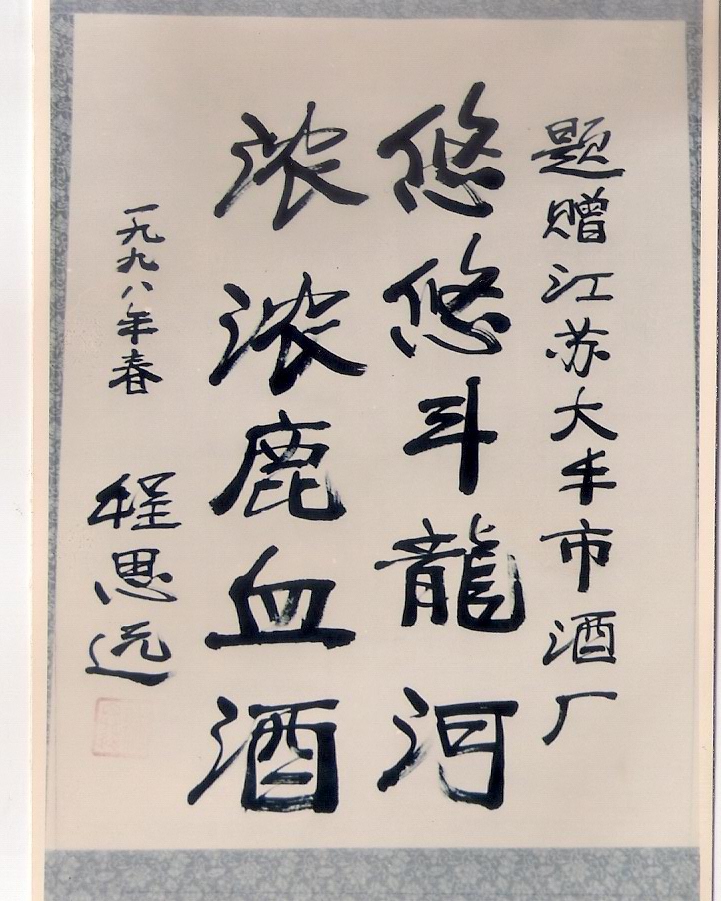 题赠江苏大丰市酒厂
悠悠斗龍河
浓浓鹿血酒
一九九八年春
程思远